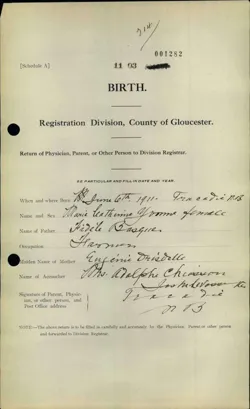 214
001282
[Schedule A]
11 93
BIRTH.
Registration Division, County of Gloucester.
Return of Physician, Parent, or Other Person to Division Registrar.
BE PARTICULAR AND FILL IN DATE AND YEAR.
When and where Born June 6th 1911 Tracadie N.B
Name and Sex Marie Catherine Yvonne female
Name of Father Fidele Basque
Occupation
Maiden Name of Mother Eugenie
Name of Accoucher Mrs. Adolphe Chiasson
Signature of Parent, Physician, or other person, and Post Office address
Tracadie
N B
NOTE.—The above return is to be filled in carefully and accurately by the Physician, Parent or other person and forwarded to Division Registrar.